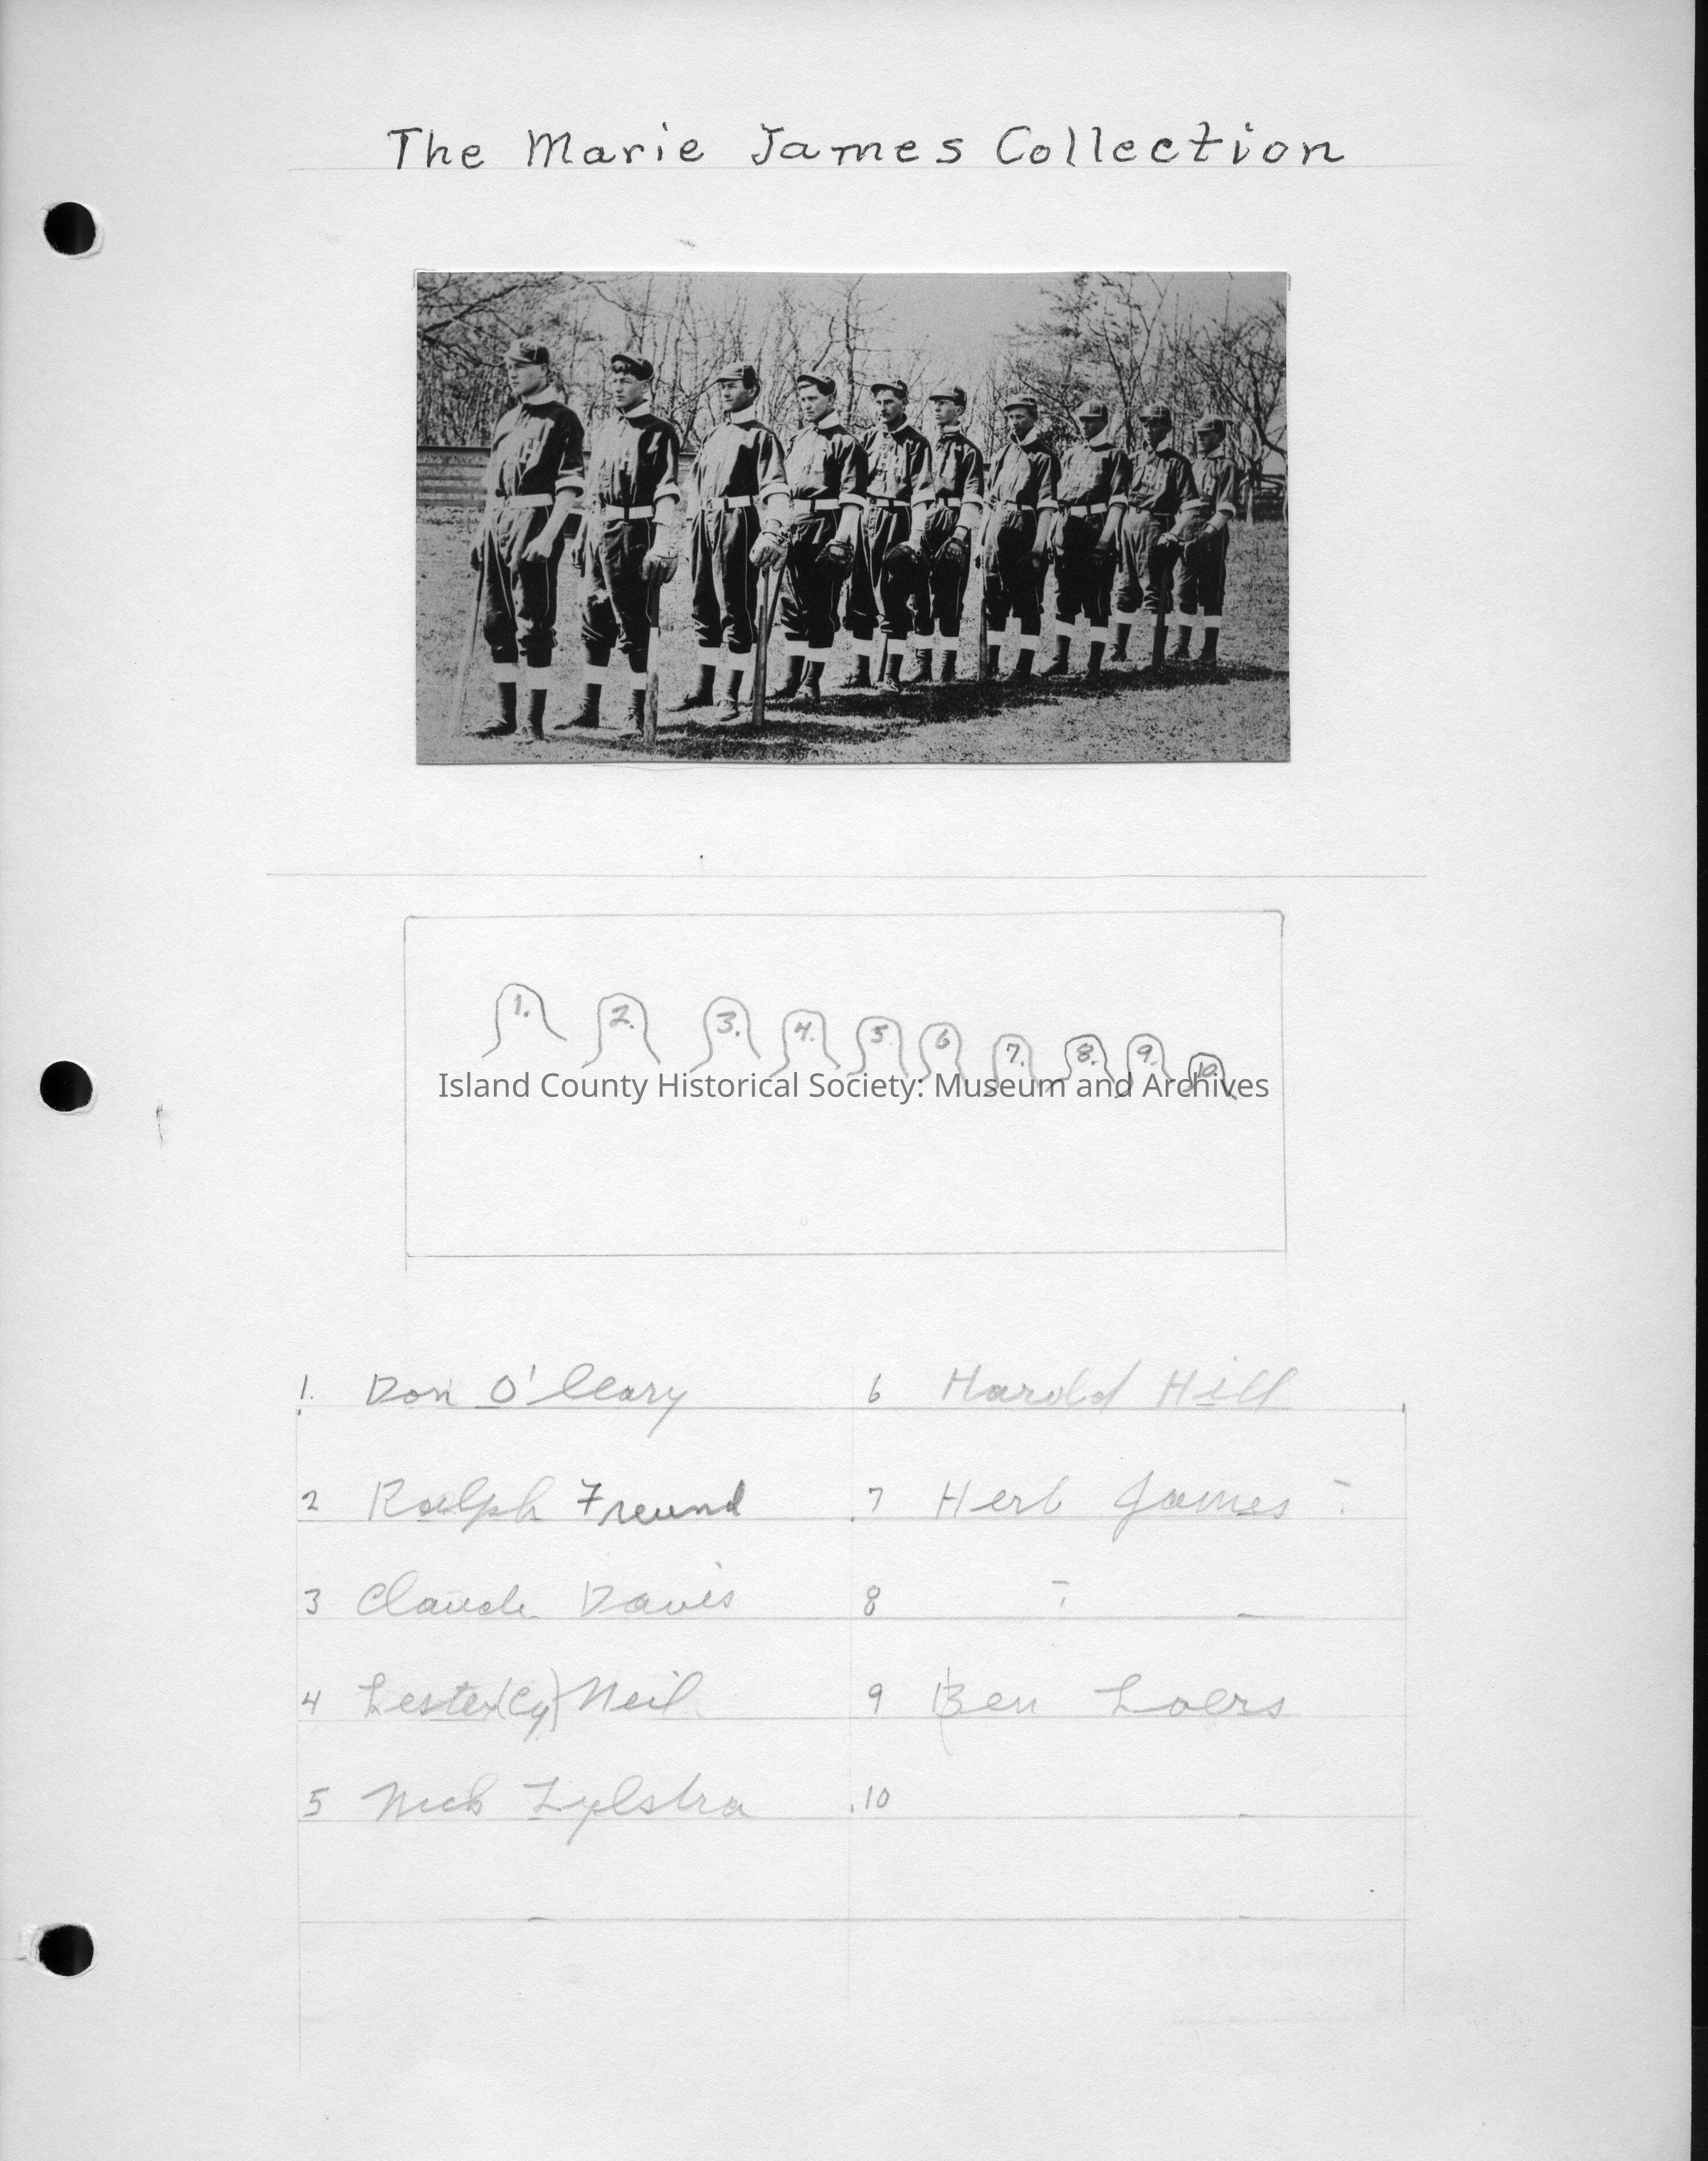 The Marie James Collection
1. 2. 3. 4. 5 6 7. 8. 9. 10.
Island County Historical Society: Museum and Archives
1. Don O'Leary 6 Harold Hill
2 Ralph Freund 7 Herb James ?
3 Claude Davis 8 ?
4 Lester (Cy) Neil 9 Ben Loers
5 Nick Zylstra 10